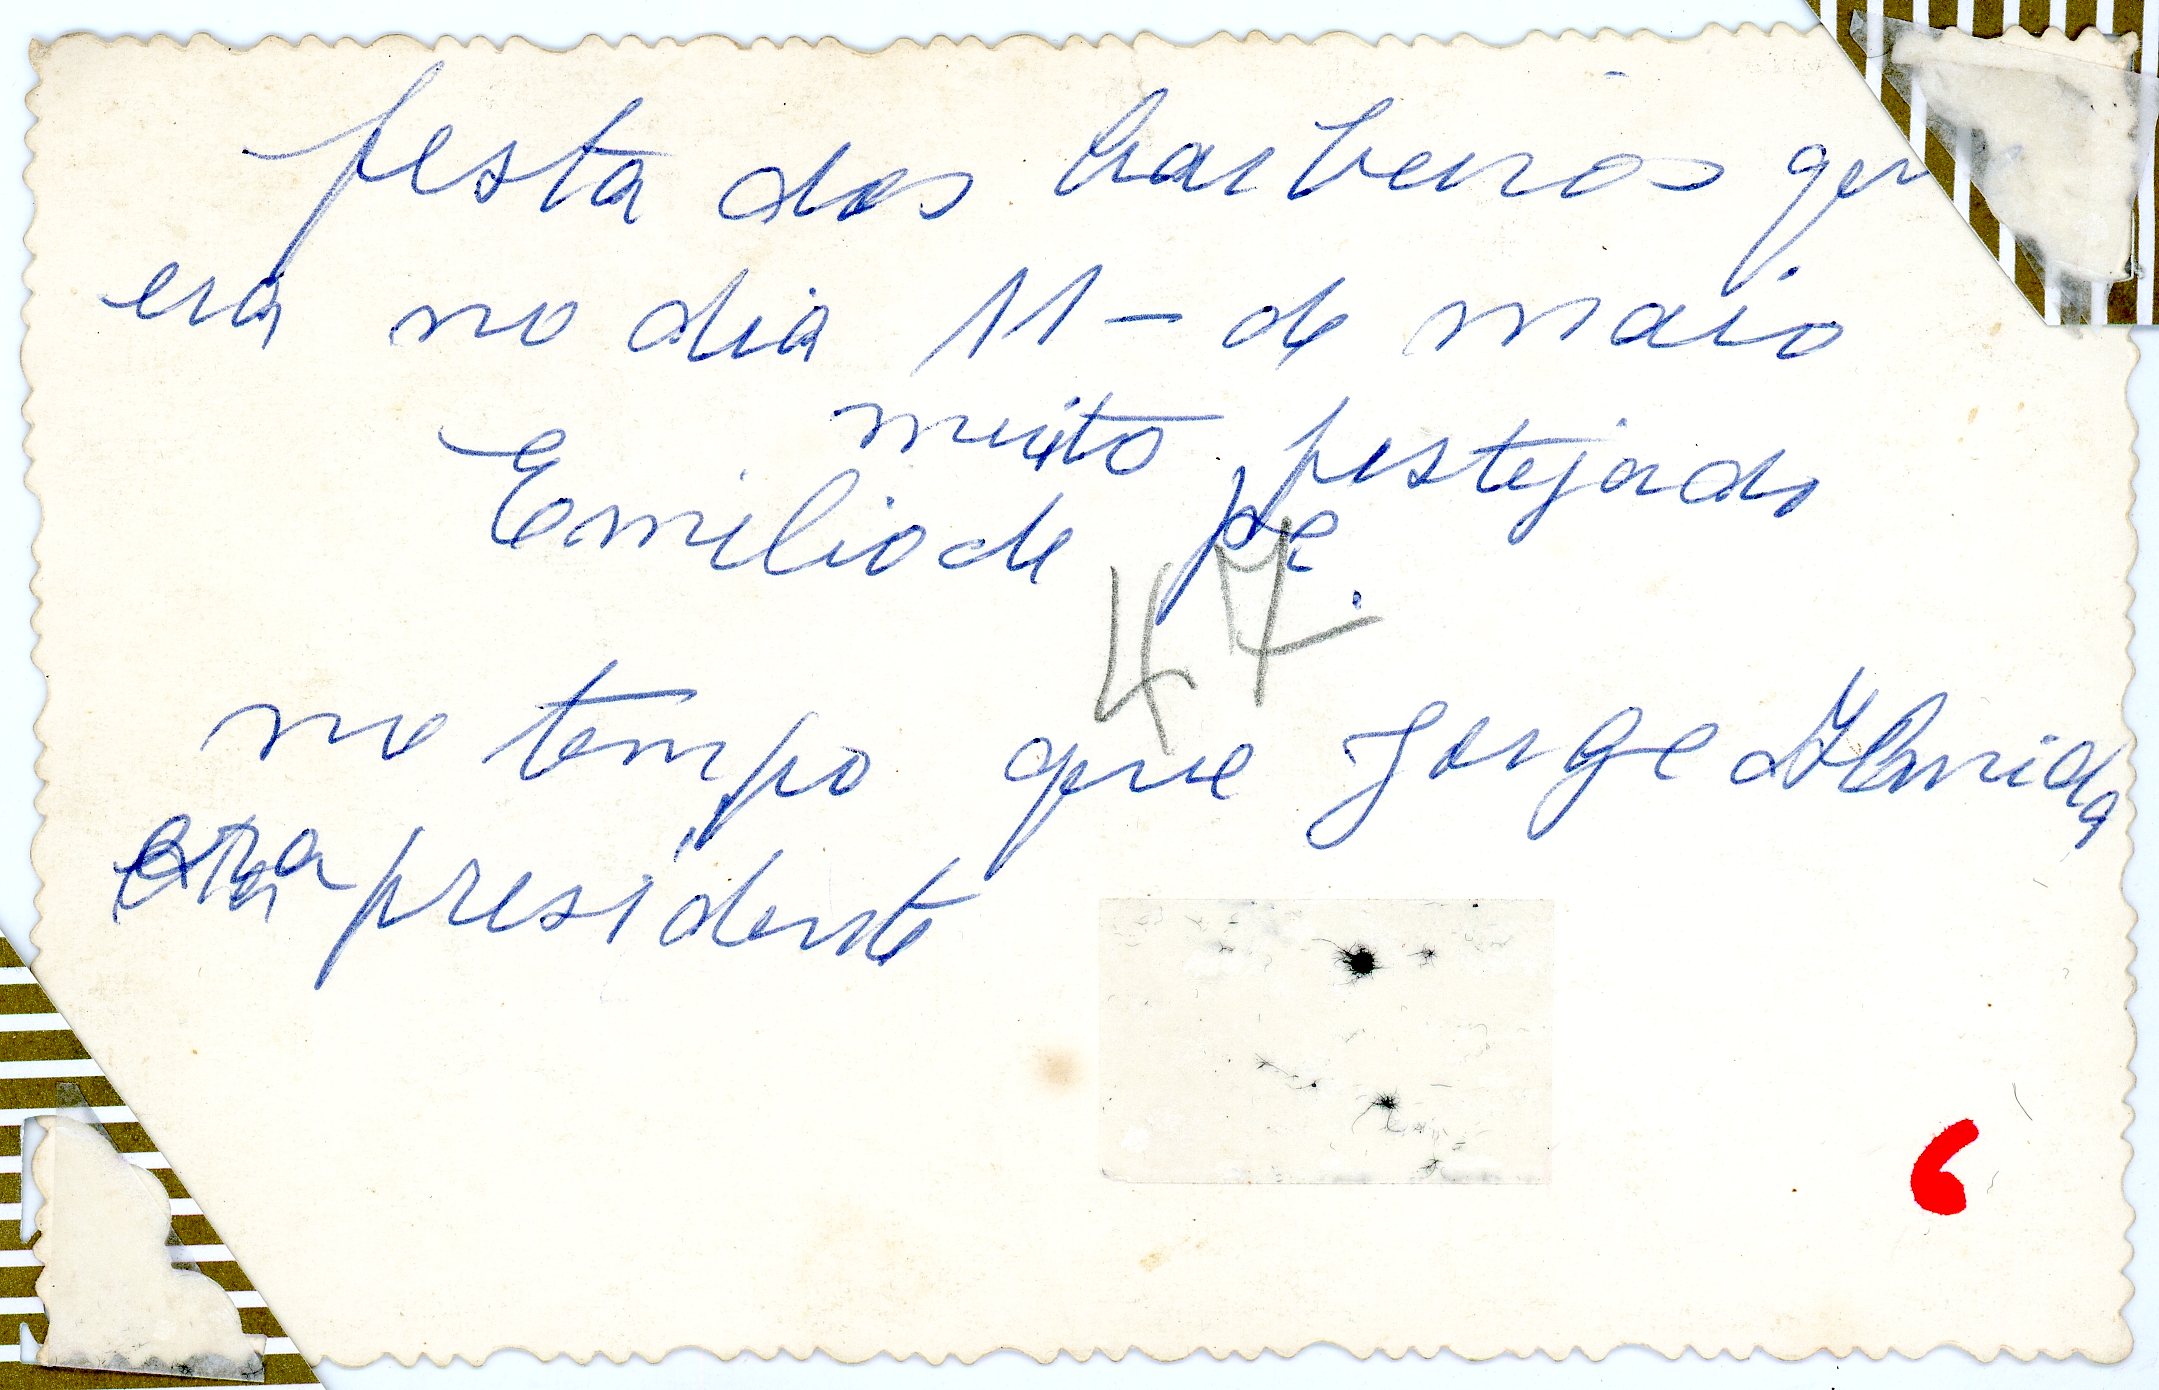 festa dos barbeiros que
era no dia 11 - de maio
muito festejado
Emilio de pé.
47
no tempo que Jorge Almida
era presidente
6